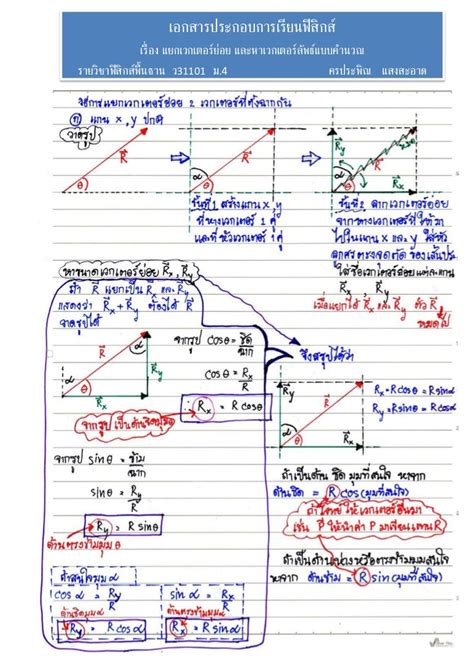 เอกสารประกอบการเรียนฟิสิกส์
เรื่อง แยกเวกเตอร์ย่อย และหาเวกเตอร์ลัพธ์แบบคำนวณ
รายวิชาฟิสิกส์พื้นฐาน ว31101 ม.4 ครูประพิณ แสงสะอาด
วิธีการแยกเวกเตอร์ย่อย 2 เวกเตอร์ที่ตั้งฉากกัน
① แกน x, y ปกติ
วาดรูป
R θ
R α θ
R α θ Ry Rx
ขั้นที่ 1 สร้างแกน x, y
ที่หางเวกเตอร์ 1 คู่
และที่หัวเวกเตอร์ 1 คู่
ขั้นที่ 2 ลากเวกเตอร์ย่อย
จากหางเวกเตอร์ที่ให้มา
ไปในแนว x และ y ให้หัว
ลูกศรตรงจุดตัดของเส้นประ
ใส่ชื่อเวกเตอร์ย่อยแต่ละแกน
Rx, Ry
เมื่อแยกได้ Rx และ Ry ตัว R
หมดไป
หาขนาดเวกเตอร์ย่อย Rx, Ry
ถ้า R แยกเป็น Rx และ Ry
แสดงว่า Rx + Ry ต้องได้ R
วาดรูปได้
R α θ Ry Rx
จากรูป cosθ = ชิด/ฉาก
cosθ = Rx/R
Rx = R cosθ
จากรูป เป็นด้านชิดมุม θ
จากรูป sinθ = ข้าม/ฉาก
sinθ = Ry/R
Ry = R sinθ
ด้านตรงข้ามมุม θ
ถ้าสนใจมุม α
cos α = Ry/R
sin α = Rx/R
ด้านชิดมุม α
ด้านตรงข้ามมุม α
Ry = R cos α
Rx = R sin α
จึงสรุปได้ว่า
Ry α R θ Rx
Rx = R cosθ = R sin α
Ry = R sinθ = R cos α
ถ้าเป็นด้าน ชิด มุมที่สนใจ หาจาก
ด้านชิด = R cos(มุมที่สนใจ)
ถ้าโจทย์ ให้เวกเตอร์อื่นมา
เช่น P ให้นำค่า P มาเขียนแทน R
ถ้าเป็นด้านห่างหรือตรงข้ามมุมสนใจ
หาจาก ด้านข้าม = R sin(มุมที่สนใจ)